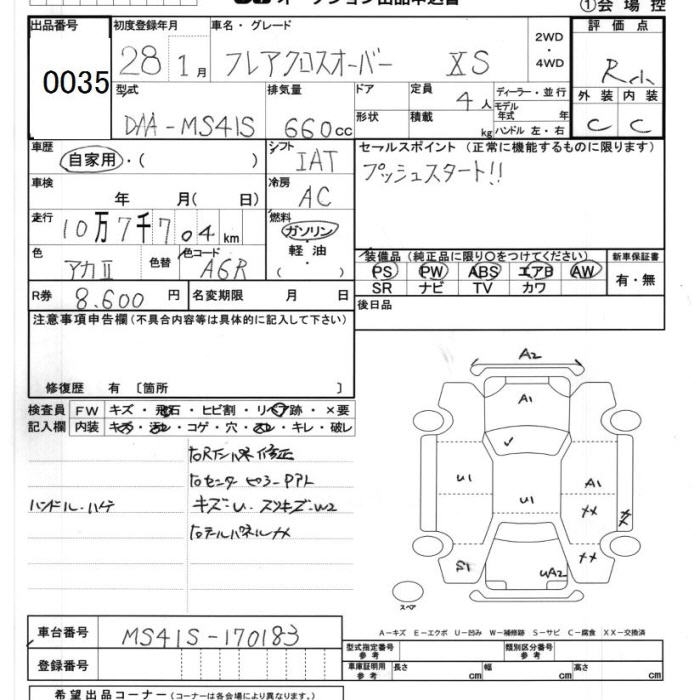 オークション出品申込書
①会場控
出品番号 0035
初度登録年月 28 1月
車名・グレード フレアクロスオーバー XS
2WD・4WD
評価点 R
外装 C 内装 C
型式 DAA-MS41S
排気量 660cc
ドア 形状
定員 4人
積載 kg
ディーラー・並行
モデル年式 年
ハンドル 左・右
車歴 自家用・( )
シフト IAT
セールスポイント (正常に機能するものに限ります)
プッシュスタート!!
車検 年 月( 日)
冷房 AC
走行 10万7千704km
燃料 ガソリン・軽油・( )
色 アカⅡ 色替
色コード A6R
装備品 (純正品に限り○をつけてください)
PS PW ABS エアB AW
SR ナビ TV カワ
新車保証書 有・無
R券 8,600円
名変期限 月 日
後日品
注意事項申告欄(不具合内容等は具体的に記入して下さい)
修復歴 有 [箇所 ]
検査員 FW キズ・飛石・ヒビ割・リペア跡・×要
記入欄 内装 キズ・汚レ・コゲ・穴・スレ・キレ・破レ
ハンドル・ハゲ
キズ・U・スリキズ・W2
A2
A1
U1 U1 A1
XX XX
XX
S1 UA2
スペア
A-キズ E-エクボ U-凹み W-補修跡 S-サビ C-腐食 XX-交換済
車台番号 MS41S-170183
登録番号
型式指定番号 参考
類別区分番号 参考
車庫証明用 参考 長さ cm 幅 cm 高さ cm
希望出品コーナー(コーナーは各会場により異なります。)